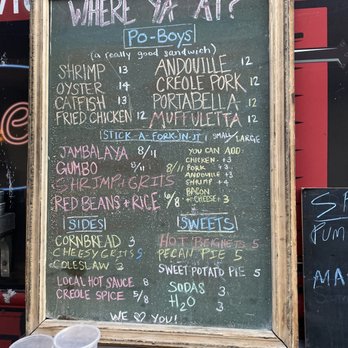 WHERE YA' AT?
PO-BOYS
(a really good sandwich)
SHRIMP 13
OYSTER 14
CATFISH 13
FRIED CHICKEN 12
ANDOUILLE 12
CREOLE PORK 12
PORTABELLA 12
MUFFULETTA 12
STICK-A-FORK-IN-IT SMALL/LARGE
JAMBALAYA 8/11
GUMBO 8/11
SHRIMP+GRITS
RED BEANS + RICE 6/8
YOU CAN ADD:
CHICKEN +3
PORK +3
ANDOUILLE +3
SHRIMP +4
BACON
+CHEESE +3
SIDES
CORNBREAD 3
CHEESY GRITS 5
COLESLAW 3
LOCAL HOT SAUCE 8
CREOLE SPICE 5/8
SWEETS
HOT BEIGNETS 5
PECAN PIE 5
SWEET POTATO PIE 5
SODAS 3
H2O 3
WE ♡ YOU!